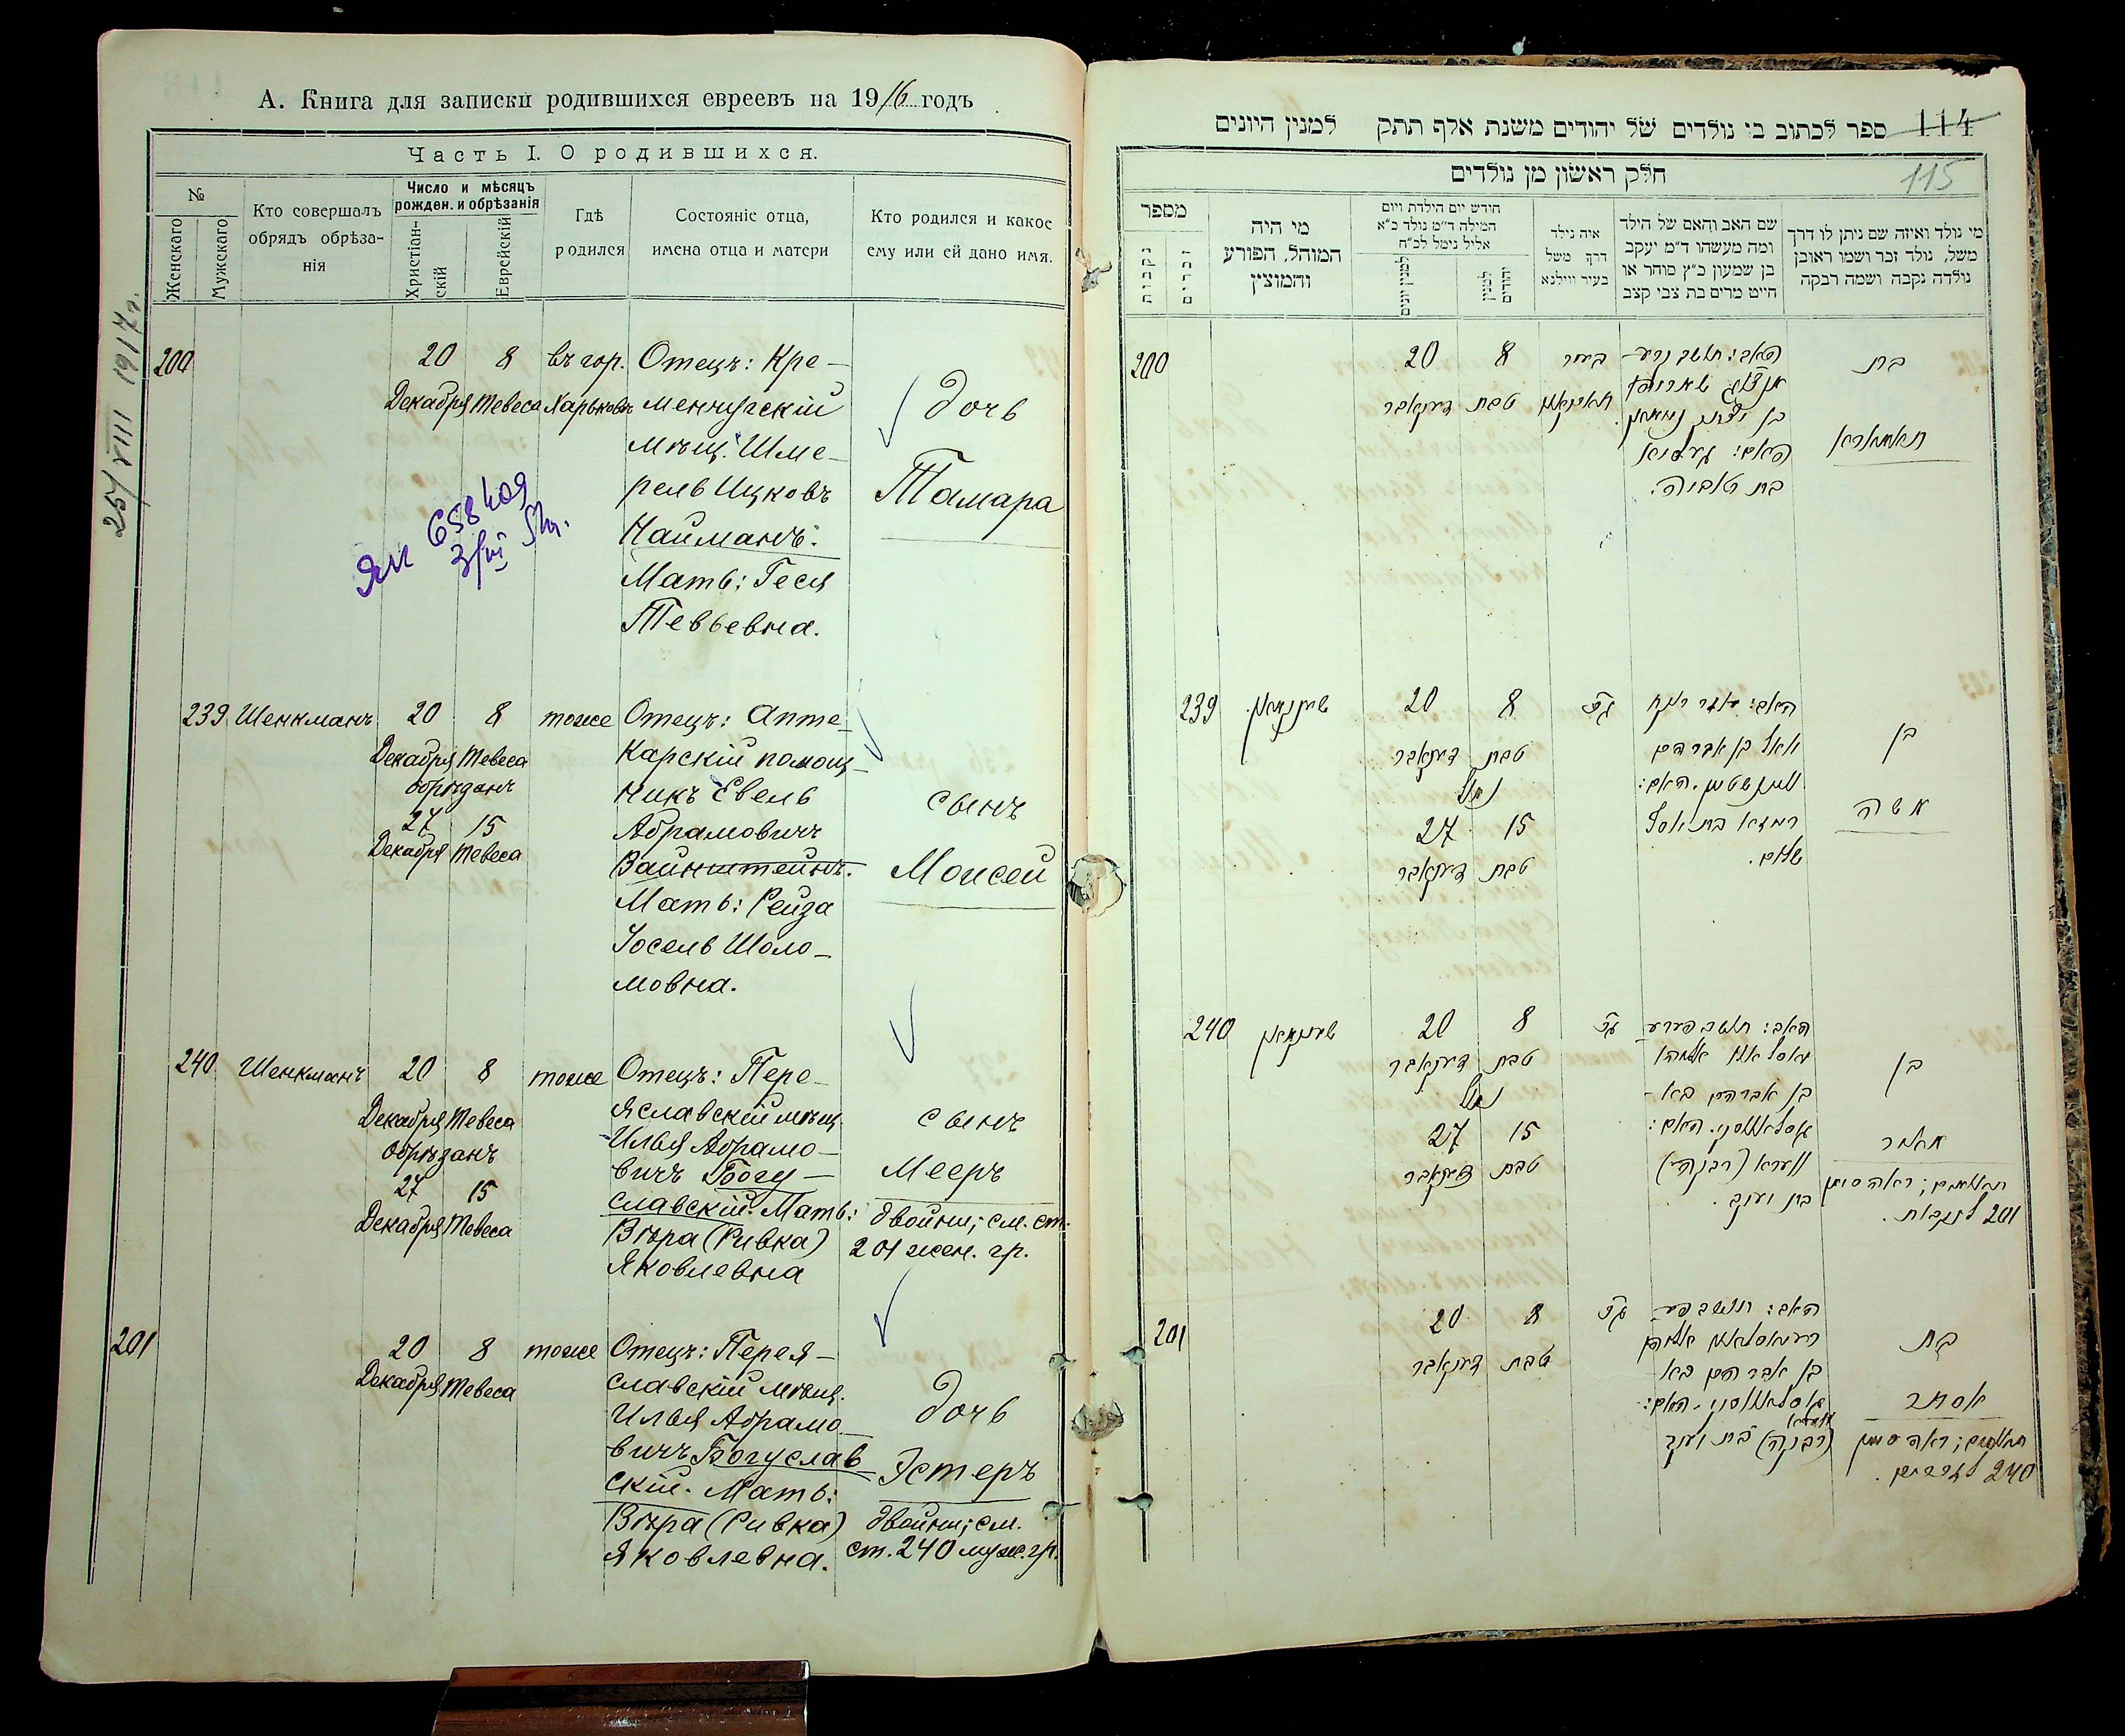 А. Книга для записки родившихся евреевъ на 1916 годъ
Часть I. О родившихся.
№
Женскаго
Мужскаго
Кто совершалъ
обрядъ обрѣза-
нія
Число и мѣсяцъ
рожден. и обрѣзанія
Христіан-
скій
Еврейскій
Гдѣ
родился
Состояніе отца,
имена отца и матери
Кто родился и какое
ему или ей дано имя.
25/VIII 1917 г.
200
20 8
Декабря Тевеса
въ гор.
Харьковѣ
Отецъ: Кре-
менчугскій
мѣщ. Шме-
рель Ицковъ
Найманъ.
Мать: Геся
Тевьевна.
дочь
Тамара
658409
239 Шенкманъ
20 8
Декабря Тевеса
обрѣзанъ
27 15
Декабря Тевеса
тоже
Отецъ: Апте-
карскій помощ-
никъ Евель
Абрамовичъ
Вайнштейнъ.
Мать: Рейза
Іосель Шоло-
мовна.
сынъ
Моисей
240 Шенкманъ
20 8
Декабря Тевеса
обрѣзанъ
27 15
Декабря Тевеса
тоже
Отецъ: Пере-
яславскій мѣщ.
Илья Абрамо-
вичъ Богу-
славскій. Мать:
Вѣра (Ривка)
Яковлевна
сынъ
Мееръ
двойни; см. ст.
201 жен. гр.
201
20 8
Декабря Тевеса
тоже
Отецъ: Перея-
славскій мѣщ.
Илья Абрамо-
вичъ Богуслав
скій. Мать:
Вѣра (Ривка)
Яковлевна.
дочь
Эстеръ
двойни; см.
ст. 240 муж. гр.
ספר לכתוב בו נולדים של יהודים משנת אלף תתק למנין היונים
114
115
חלק ראשון מן נולדים
מספר
נקבות
זכרים
מי היה
המוהל, הפורע
והמוצץ
חודש יום הילדת ויום
המילה ד״מ נולד כ״א
אליל נימל לכ״ח
למנין יונים
למנין
יהודים
איה נולד
דרך משל
בעיר ווילנא
שם האב והאם של הילד
ומה מעשהו ד״מ יעקב
בן שמעון כ״ץ סוחר או
חייט מרים בת צבי קצב
מי נולד ואיזה שם ניתן לו דרך
משל, נולד זכר ושמו ראובן
נולדה נקבה ושמה רבקה
200
20 8
טבת דעקאבר
בת
תאמארא
239
שענקמאן
20 8
טבת דעקאבר
נמול
27 15
טבת דעקאבר
בן
משה
240
שענקמאן
20 8
טבת דעקאבר
נמול
27 15
טבת דעקאבר
בן אברהם בא-
ווערא (רבקה)
בת יעקב.
בן
מאיר
תאומים; ראה סימן
201 לנקבות.
201
20 8
טבת דעקאבר
בן אברהם בא-
(רבקה) בת יעקב
בת
אסתר
תאומים; ראה סימן
240 לזכרים.